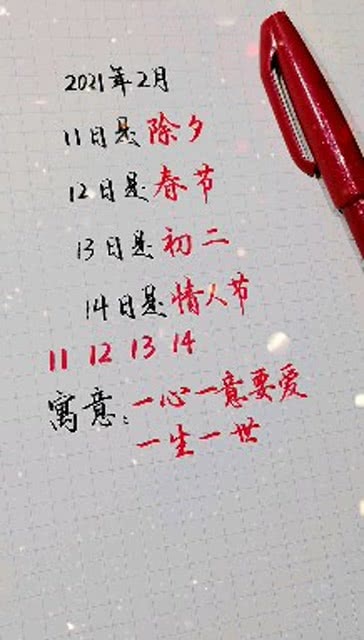 2021年2月
11日是除夕
12日是春节
13日是初二
14日是情人节
11 12 13 14
寓意:一心一意要爱
一生一世